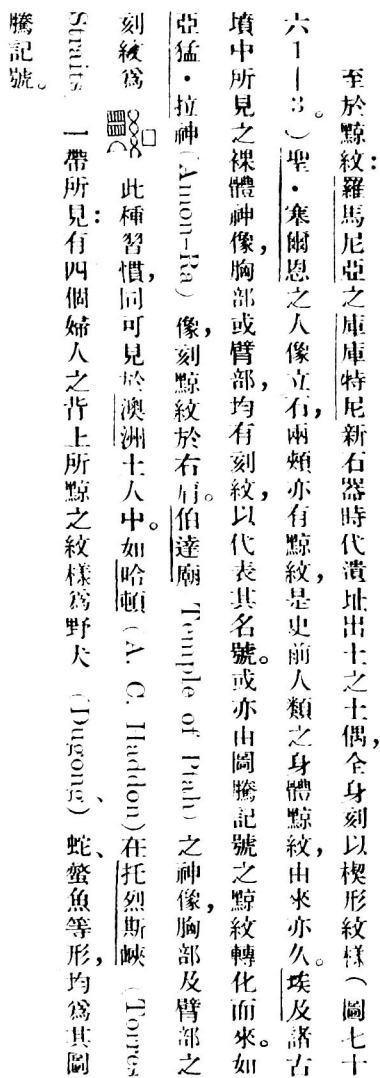 至於黥紋：羅馬尼亞之庫庫特尼新石器時代遺址出土之土偶，全身刻以楔形紋樣（圖七十
六1—3。）聖·塞爾恩之人像立石，兩頰亦有黥紋，是史前人類之身體黥紋，由來亦久。埃及諸古
墳中所見之裸體神像，胸部或臂部，均有刻紋，以代表其名號。或亦由圖騰記號之黥紋轉化而來。如
亞猛·拉神（Amon-Ra）像，刻黥紋於右肩。伯達廟（Temple of Ptah）之神像，胸部及臂部之
刻紋爲 此種習慣，同可見於澳洲土人中。如哈頓（A. C. Haddon）在托烈斯峽（Torres
Straits）一帶所見：有四個婦人之背上所黥之紋樣爲野犬、（Dugong）蛇、螫魚等形，均爲其圖
騰記號。